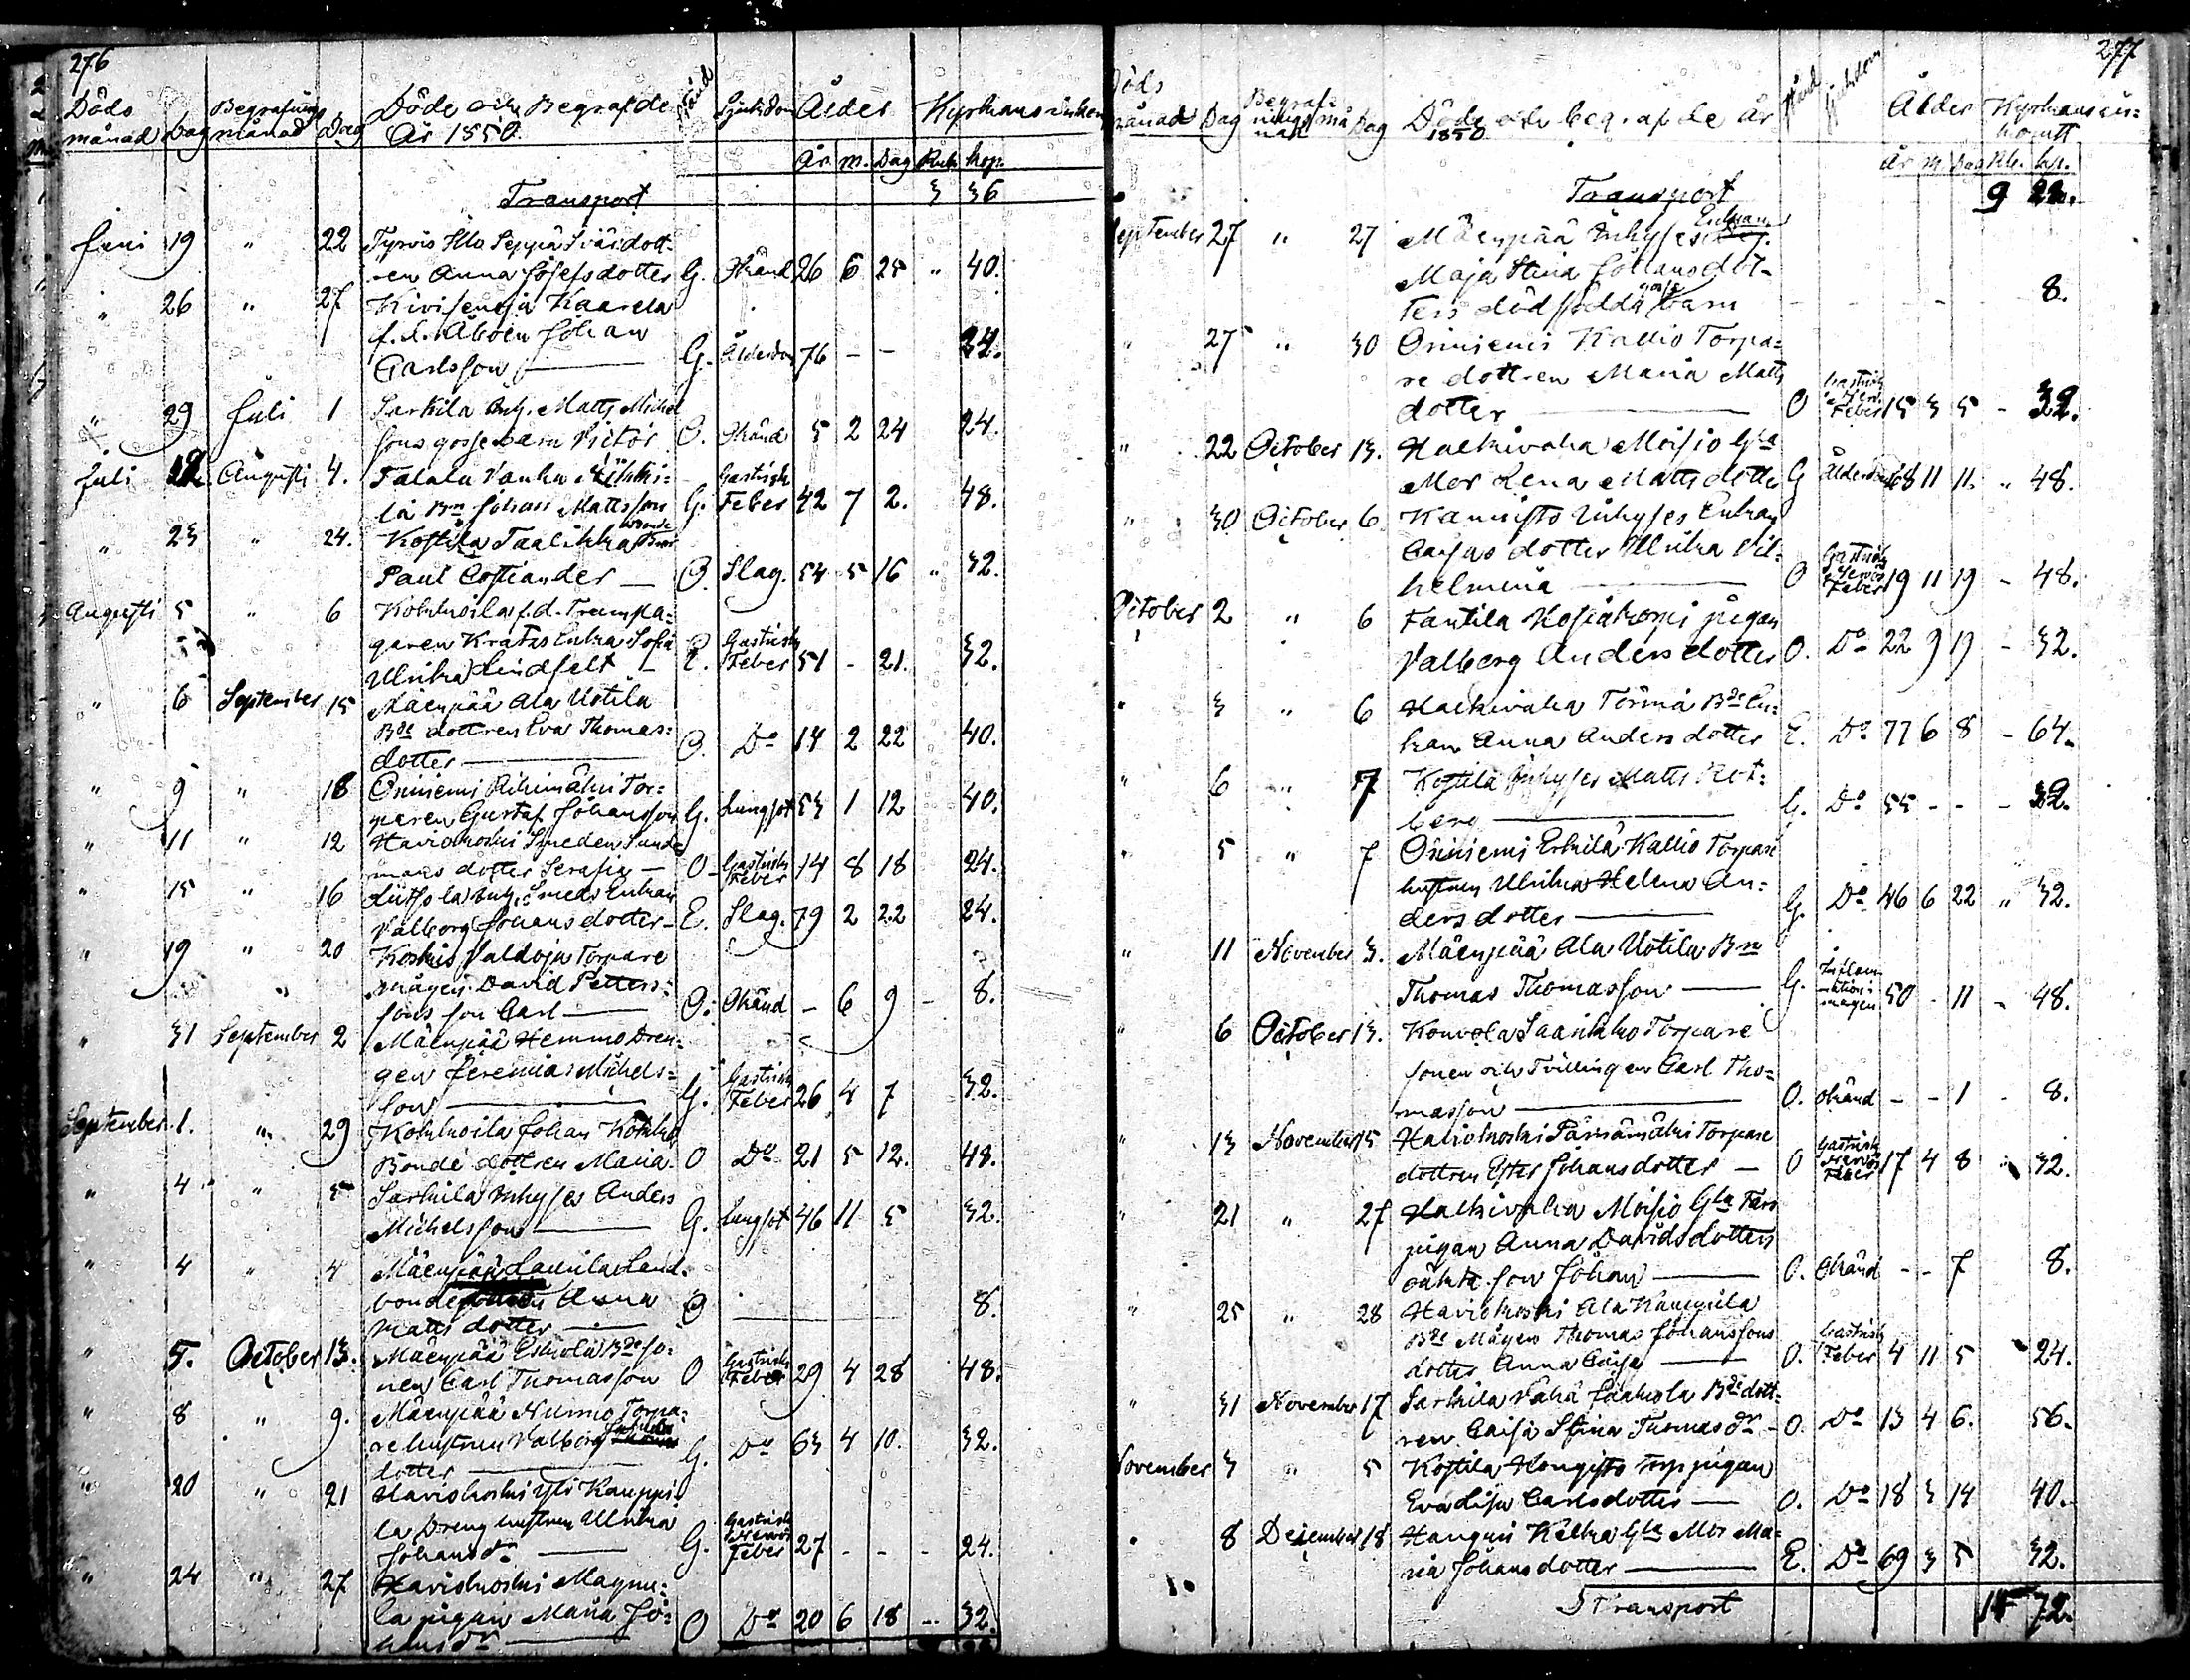 276
Döds månad Dag Begrafnings månad Dag Döde och Begrafde År 1850. Stånd Sjukdom Ålder Kyrkans inkomst
År m. Dag Rub. kop.
Transport 3 36
Juni 19 " 22 Tyrvis Illo Seppä Svärdott-
ren Anna Josefsdotter G. Okänd 26 6 25 " 40.
" 26 " 27 Kivisenoja Kaarela
f.d. Åboen Johan
Carlsson G. Ålderdom 76 - - 24.
" 29 Juli 1 Sarkila Inh. Matts Michel
sons gossebarn Victor O. Okänd 5 2 24 24.
Juli Augusti 4. Talala Vanha
la Bn Johan Mattsson G. Gastrisk Feber 42 7 2. 48.
" 23 " 24. Kostila Taalikka Bonde
Paul Costiander O. Slag. 54 5 16 " 32.
Augusti 5 " 6 Kokkoila f.d. Trumsla-
garen Kratz Enka Sofia
Ulrika Lindfelt E. Gastrisk Feber 51 - 21. 32.
" 6 September 15 Mäenpää Ala Uotila
Bde dottren Eva Thomas-
dotter O. Do 14 2 22 40.
" 9 " 18 Oriniemi Riihimäki Tor-
paren Gustaf Johansson G. Lungsot 53 1 12 40.
" 11 " 12 Haviokoski Smeden Sund-
mans dotter Serafia O. Gastrisk Feber 14 8 18 24.
" 15 " 16 Inh. Smeds Enkan
Valborg Johansdotter E. Slag. 79 2 22 24.
" 19 " 20 Koskis Valdoja Torpare
mågen David Petters-
sons son Carl O. Okänd - 6 9 - 8.
" 31 September 2 Mäenpää Hemmo Dren-
gen Jeremias Michels-
son G. Gastrisk Feber 26 4 7 32.
September 1. " 29 Kokkoila Johan Kokko
Bonde dottren Maria O Do 21 5 12. 48.
" 4 " 5 Sarkila Inhyses Anders
Michelsson G. Lungsot 46 11 5 32.
" 4 " 4 Mäenpää Laurila Land-
bonde Anna
Matts dotter O 8.
" 5. October 13. Mäenpää Eskola Bde so-
nen Carl Thomasson O Gastrisk Feber 29 4 28 48.
" 8 " 9. Mäenpää Nummo Torpa-
re hustrun Valborg
dotter G. Do 63 4 10. 32.
" 20 " 21 Haviokoski Yli Kauppi-
la Dreng hustrun Ulrika
Johansdr G. Gastrisk Nervös Feber 27 - - - 24.
" 24 " 27 Haviokoski Magnu-
la pigan Maria Jo-
hansdr O Do 20 6 18 - 32.
277
Döds månad Dag Begrafnings månad Dag Döde och begrafde år 1850 Stånd Sjukdom Ålder Kyrkans inkomst
år m Dag Rb. kr.
Transport 9
September 27 " 27 Mäenpää Inhyses Enkan
Maja Stina Johansdot-
ters dödfödda gosse barn - - - - 8.
" 27 " 30 Oriniemi Kallio Torpa-
re dottren Maria Matts
dotter O Gastrisk Nerv. Feber 15 3 5 - 32.
" 22 October 13. Halkivaha Moisio Gla
Mor Lena Mattsdotter G Ålderdom 68 11 11. " 48.
" 30 October 6 Kannisto Inhyses Enkan
Caisas dotter Ulrika Vil-
helmina O Gastrisk Nervös Feber 19 11 19 - 48.
October 2 " 6 Tantila Kosiakorpi pigan
Valborg Anders dotter O. Do 22 9 19 - 32.
" 3 " 6 Halkivaha Törmä Bde En-
kan Anna Anders dotter E. Do 77 6 8 - 64.
" 6 " 7 Kostila Inhyses Matts Rot-
berg G. Do 55 - - - 32.
" 5 " 7 Oriniemi Erkilä Kallio Torpare
hustrun Ulrika Helena An-
ders dotter G. Do 46 6 22 " 32.
" 11 November 3. Mäenpää Ala Uotila Bn
Thomas Thomasson G. Inflammation i magen 50 - 11 - 48.
" 6 October 13. Kouvola Saarikko Torpare
sonen och Tvillingen Carl Tho-
masson O. okänd - - 1 - 8.
" 13 November 15 Haviokoski Pärnämäki Torpare
dottren Ester Johans dotter O Gastrisk Nervös Feber 17 4 8 32.
" 21 " 27 Halkivaha Moisio Gla Fars
pigan Anna Davids dotters
oäkta son Johan O. Okänd - - 7 8.
" 25 " 28 Haviokoski Ala Kauppila
Bde Mågen Thomas Johanssons
dotter Anna Caisa O. Gastrisk Feber 4 11 5 24.
" 31 November 17 Sarkila Vähä Jaakola Bde dott-
ren Caisa Stina Thomas dr O. Do 13 4 6. 56.
November 3 " 5 Kostila Hongisto Torp pigan
Eva Lisa Carlsdotter O. Do 18 3 14 40.
" 8 December 18 Hangus Kelka Gla Mor Ma-
ria Johans dotter E. Do 69 3 5 32.
Transport 15 72.